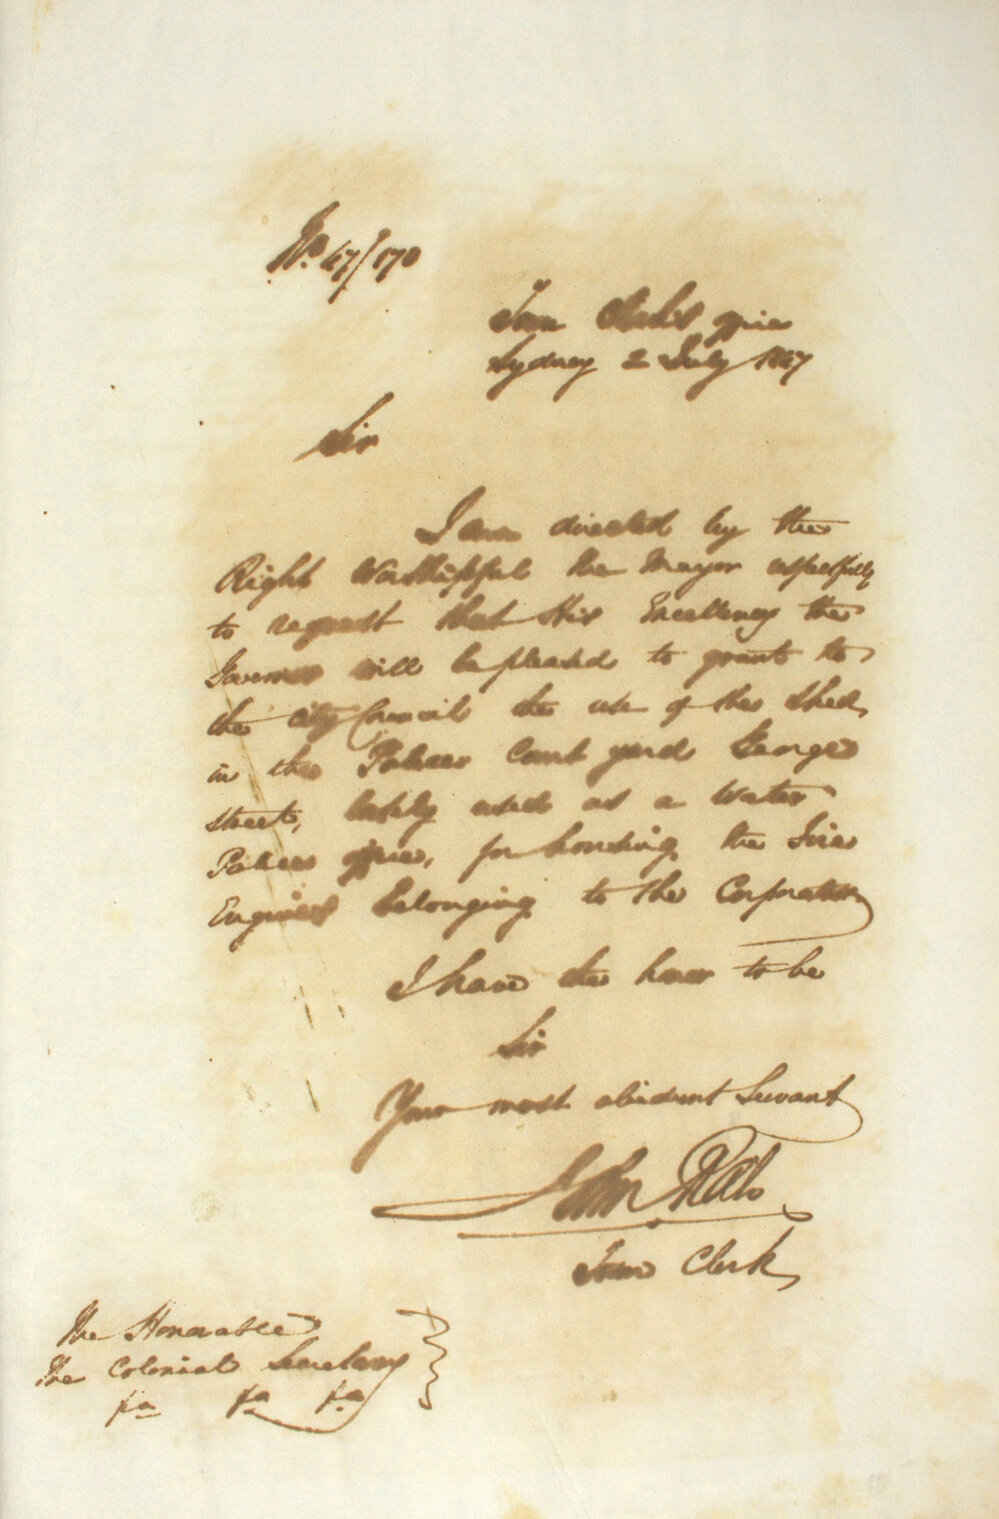 No. 47/170
Town Clerk's office
Sydney 2 July 1847
Sir
I am directed by the
Right Worshipful the Mayor respectfully
to request that His Excellency the
Governor will be pleased to grant to
the City Council the use of the Shed,
in the Police Court yard George
street, lately used as a Water
Police office, for housing the Fire
Engines belonging to the Corporation
I have the honor to be
Sir
Your most obedient Servant
John
Town Clerk
The Honorable
The Colonial Secretary